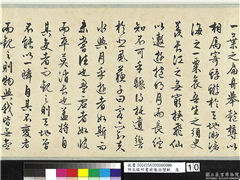 一葉之扁舟舉匏樽以
相屬寄蜉蝣於天地渺滄
海之一粟哀吾生之須臾
羨長江之無窮挾飛仙
以遨遊抱明月而長終
知不可乎驟得託遺響
於悲風蘇子曰客亦知夫
水與月乎逝者如斯而
未嘗往也盈虛者如彼
而卒莫消長也蓋將自
其變者而觀之則天地曾
不能以一瞬自其不變者
而觀之則物與我皆無盡
10